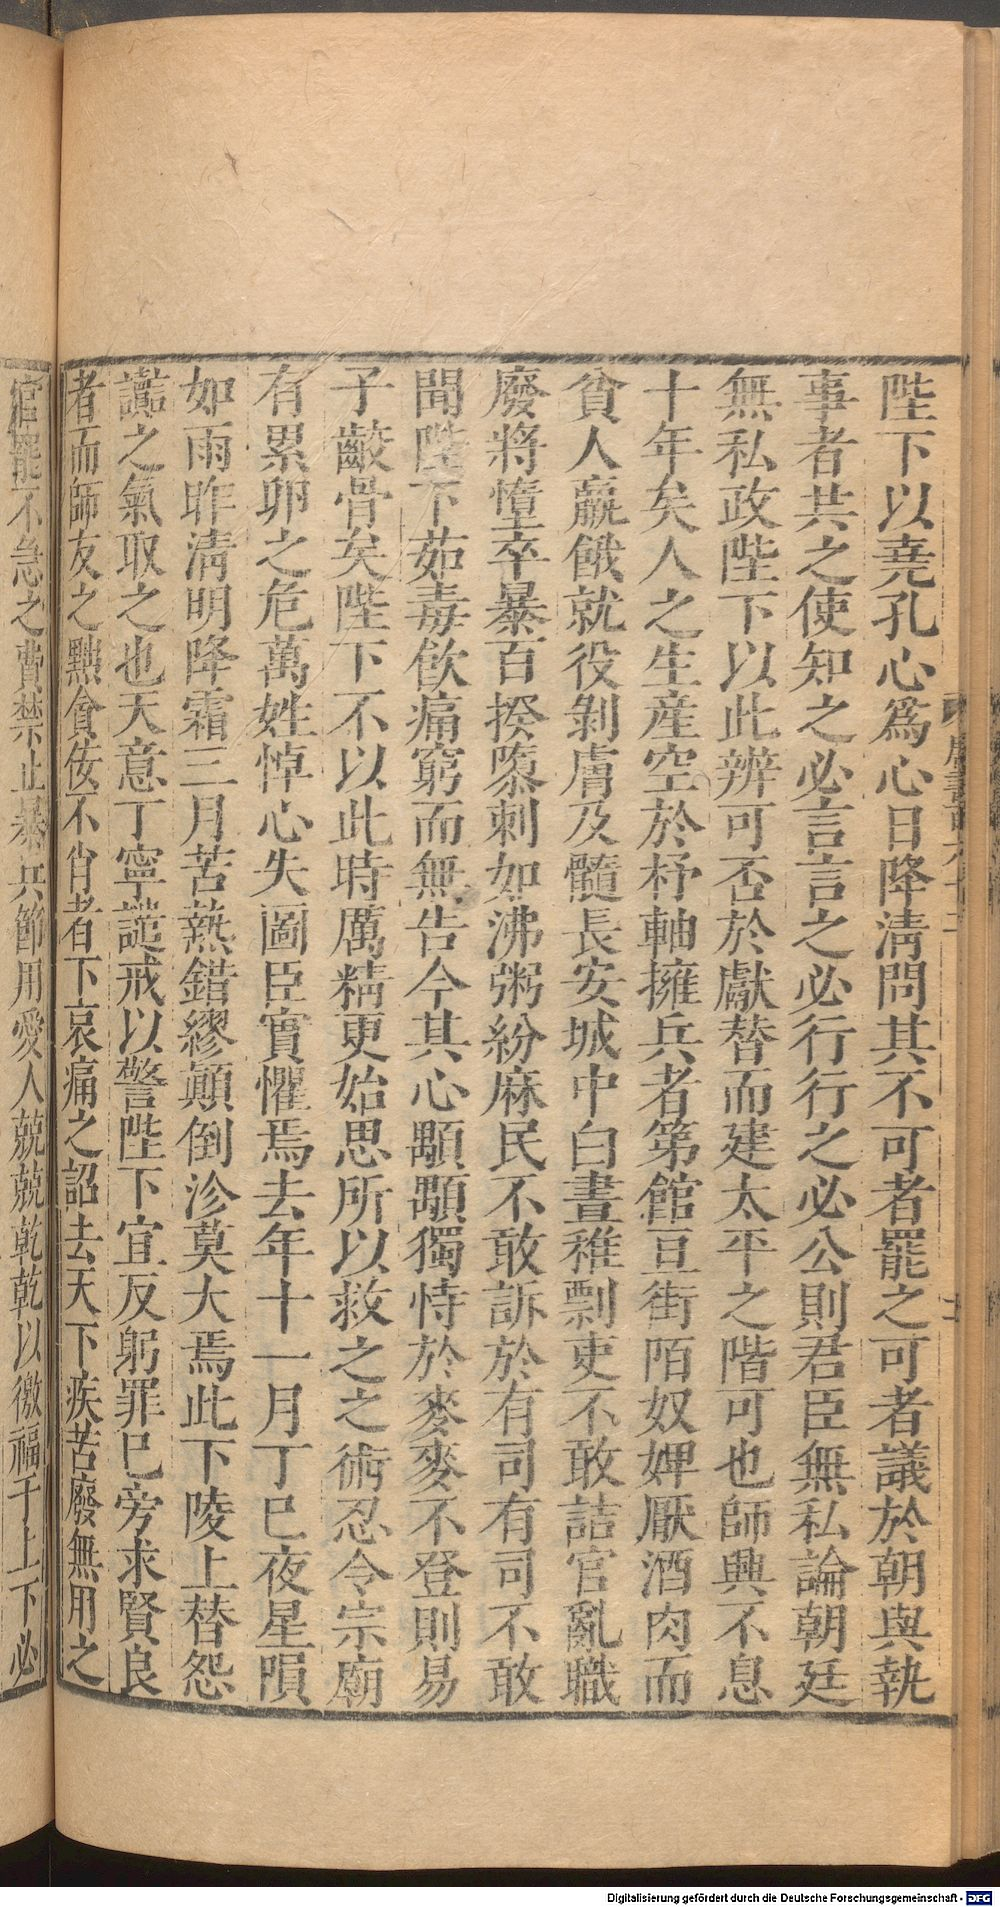 陛下以堯孔心爲心日降清問其不可者罷之可者議於朝與執
事者共之使知之必言言之必行行之必公則君臣無私論朝廷
無私政陛下以此辨可否於獻替而建太平之階可也師興不息
十年矣人之生産空於杼軸擁兵者第館亘街陌奴婢厭酒肉而
貧人羸餓就役剝膚及髓長安城中白晝椎剽吏不敢詰官亂職
廢將惰卒暴百揆隳刺如沸粥紛麻民不敢訴於有司有司不敢
聞陛下茹毒飲痛窮而無告今其心顒顒獨恃於麥麥不登則易
子齩骨矣陛下不以此時厲精更始思所以救之之術忍令宗廟
有累卵之危萬姓悼心失圖臣實懼焉去年十一月丁巳夜星隕
如雨昨清明降霜三月苦熱錯繆顛倒沴莫大焉此下陵上替怨
讟之氣取之也天意丁寧譴戒以警陛下宜反躬罪己旁求賢良
者而師友之黜貪佞不肖者下哀痛之詔去天下疾苦廢無用之
官罷不急之費禁止暴兵節用愛人兢兢乾乾以徼福于上下必
Digitalisierung gefördert durch die Deutsche Forschungsgemeinschaft - DFG